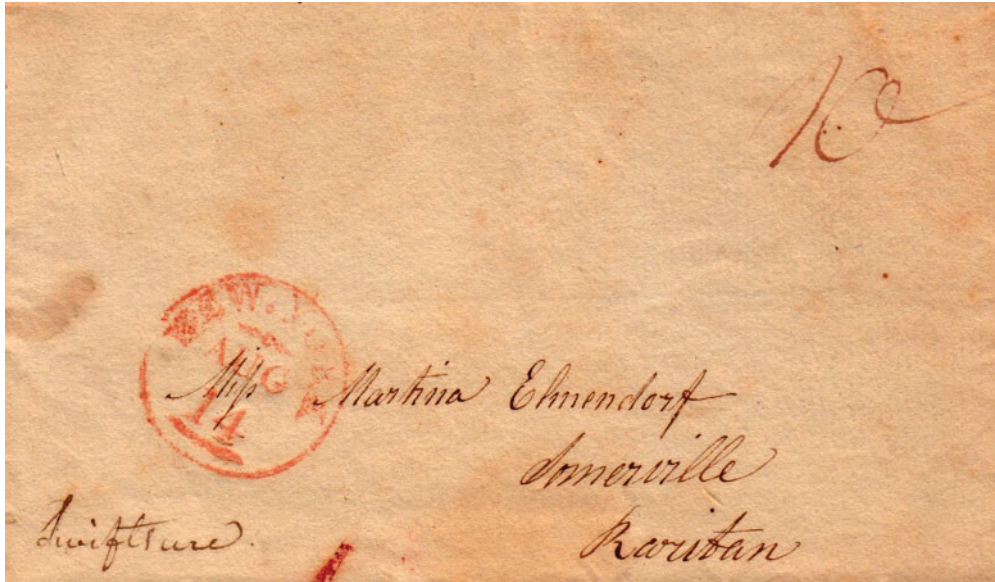 10
NEW-YORK
AUG
14
Miss Martina Elmendorf
Somerville
Raritan
Swiftsure.